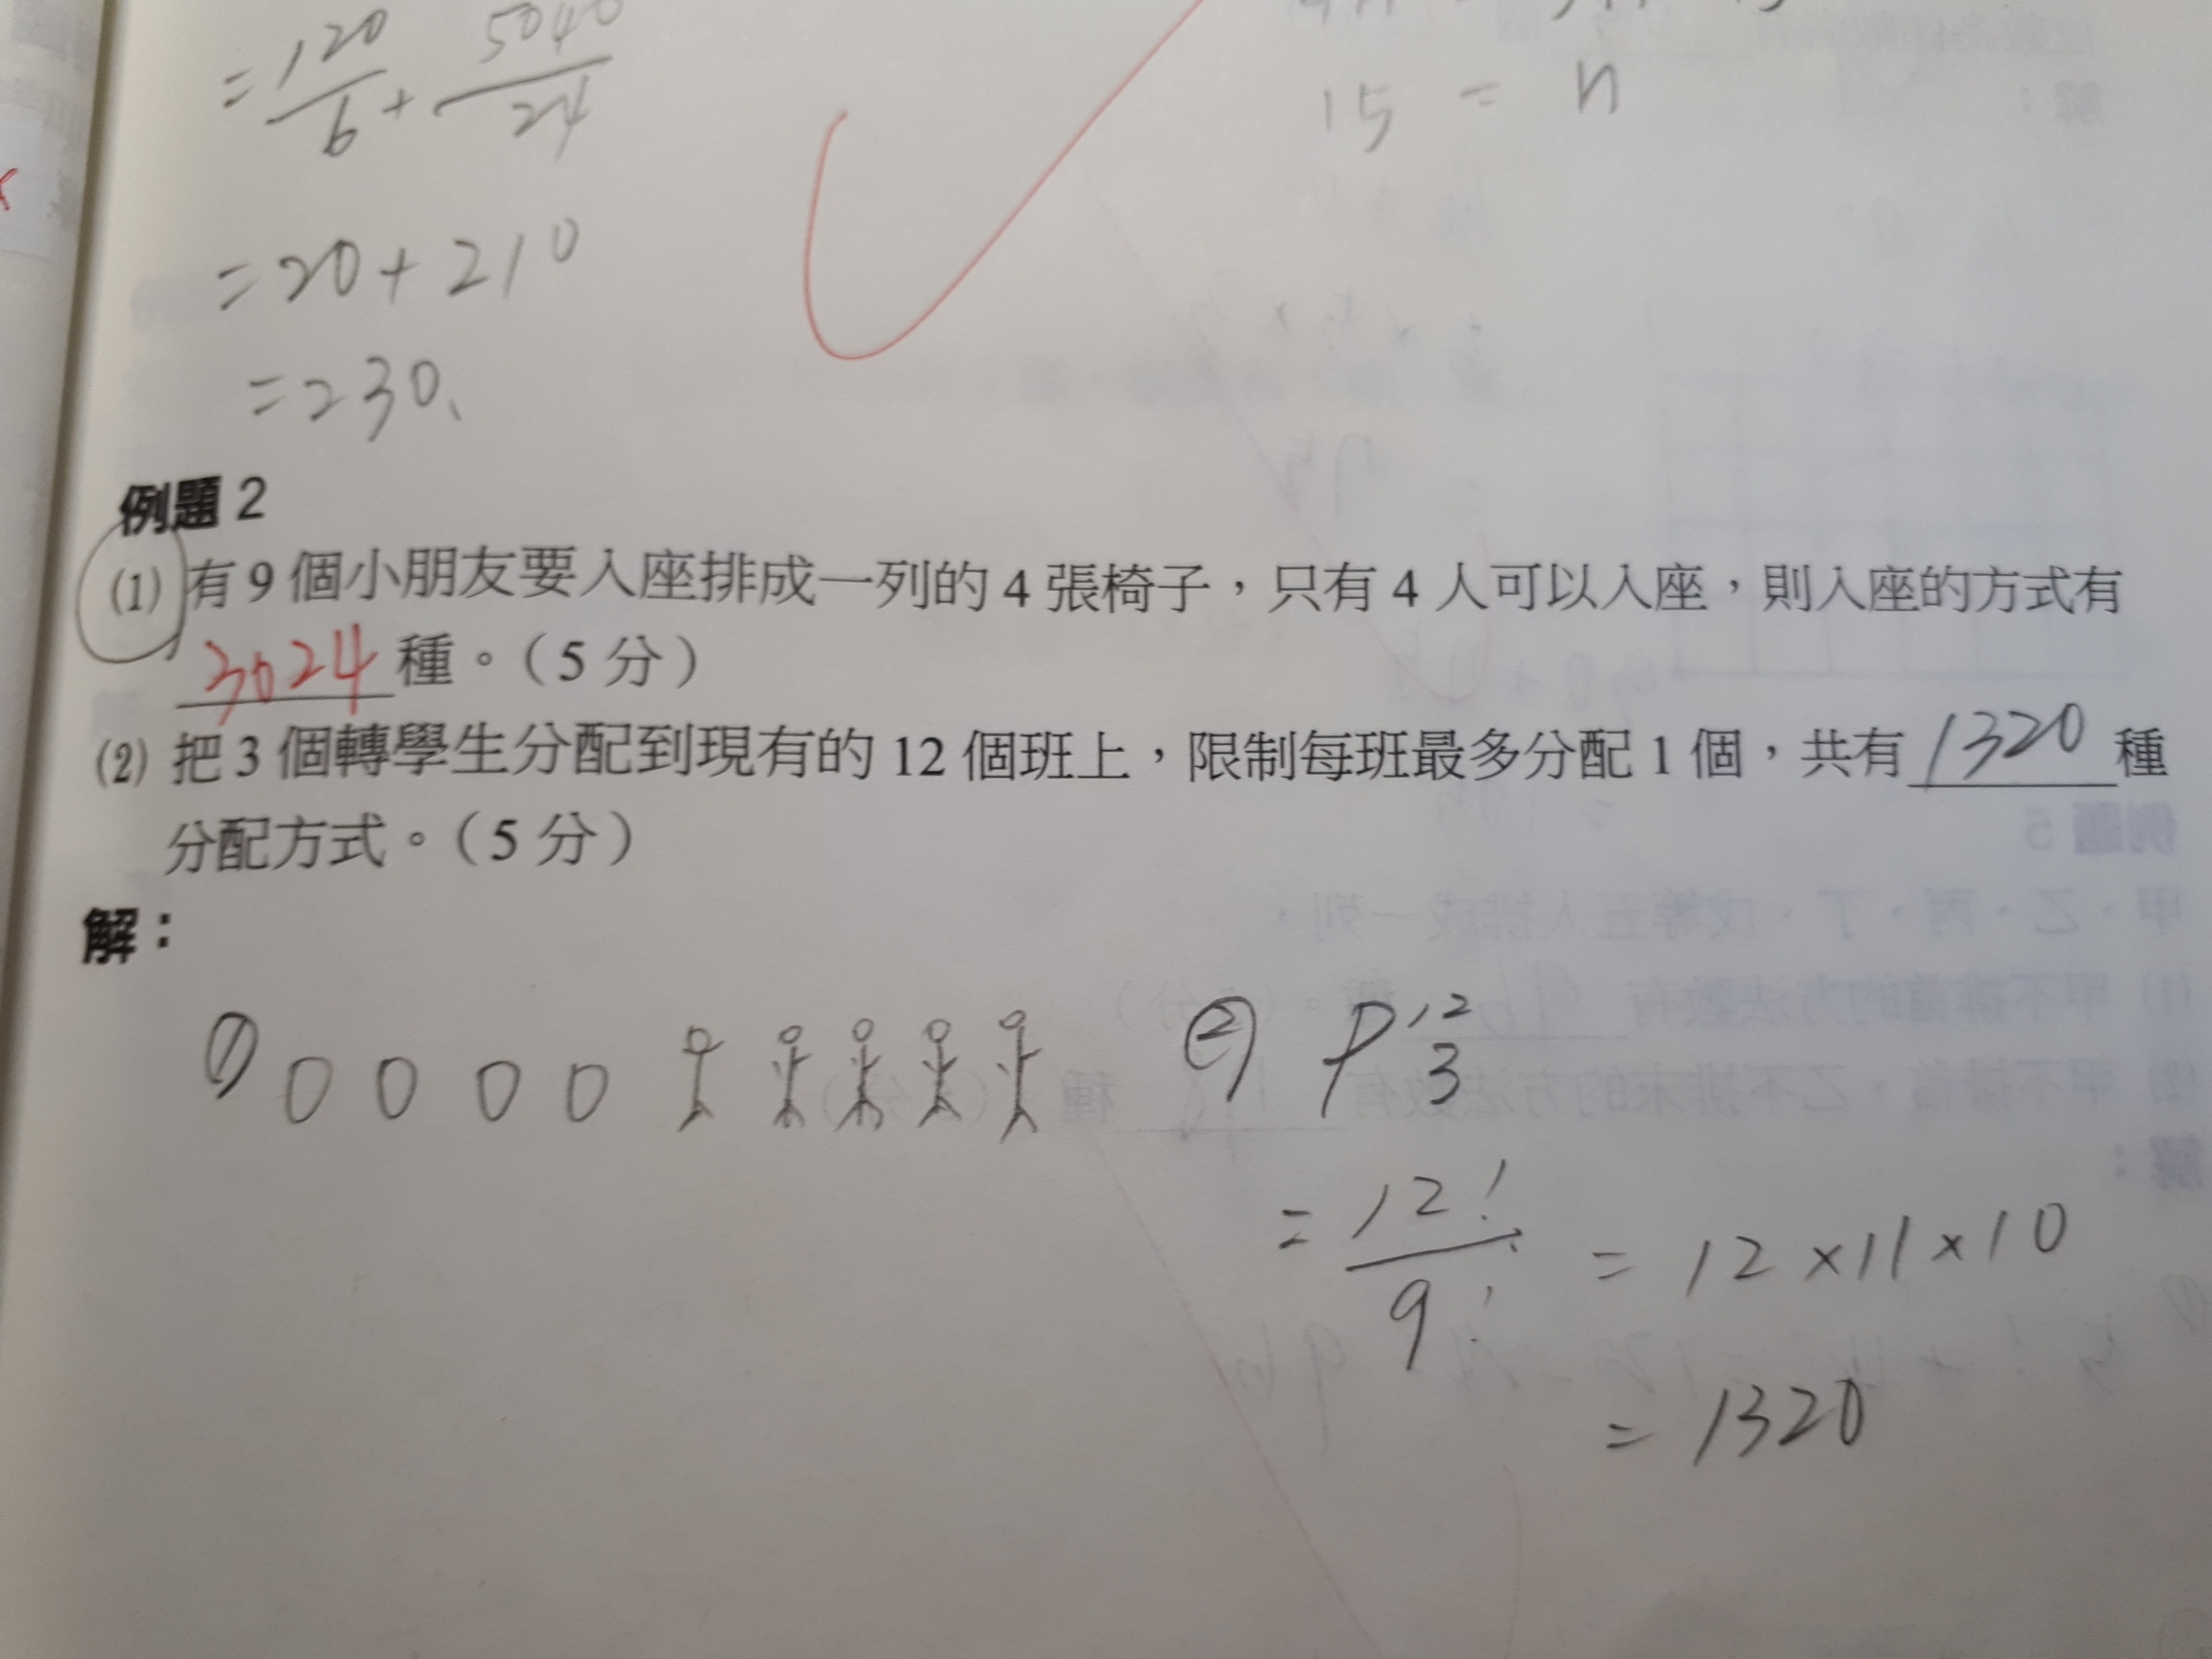 = 120/6 + 5040/24
15 = n
= 20 + 210
= 230、
例題 2
(1) 有 9 個小朋友要入座排成一列的 4 張椅子，只有 4 人可以入座，則入座的方式有
3024 種。（5 分）
(2) 把 3 個轉學生分配到現有的 12 個班上，限制每班最多分配 1 個，共有 1320 種
分配方式。（5 分）
解：
① 0 0 0 0
② P 12 3
= 12!/9! = 12 × 11 × 10
= 1320